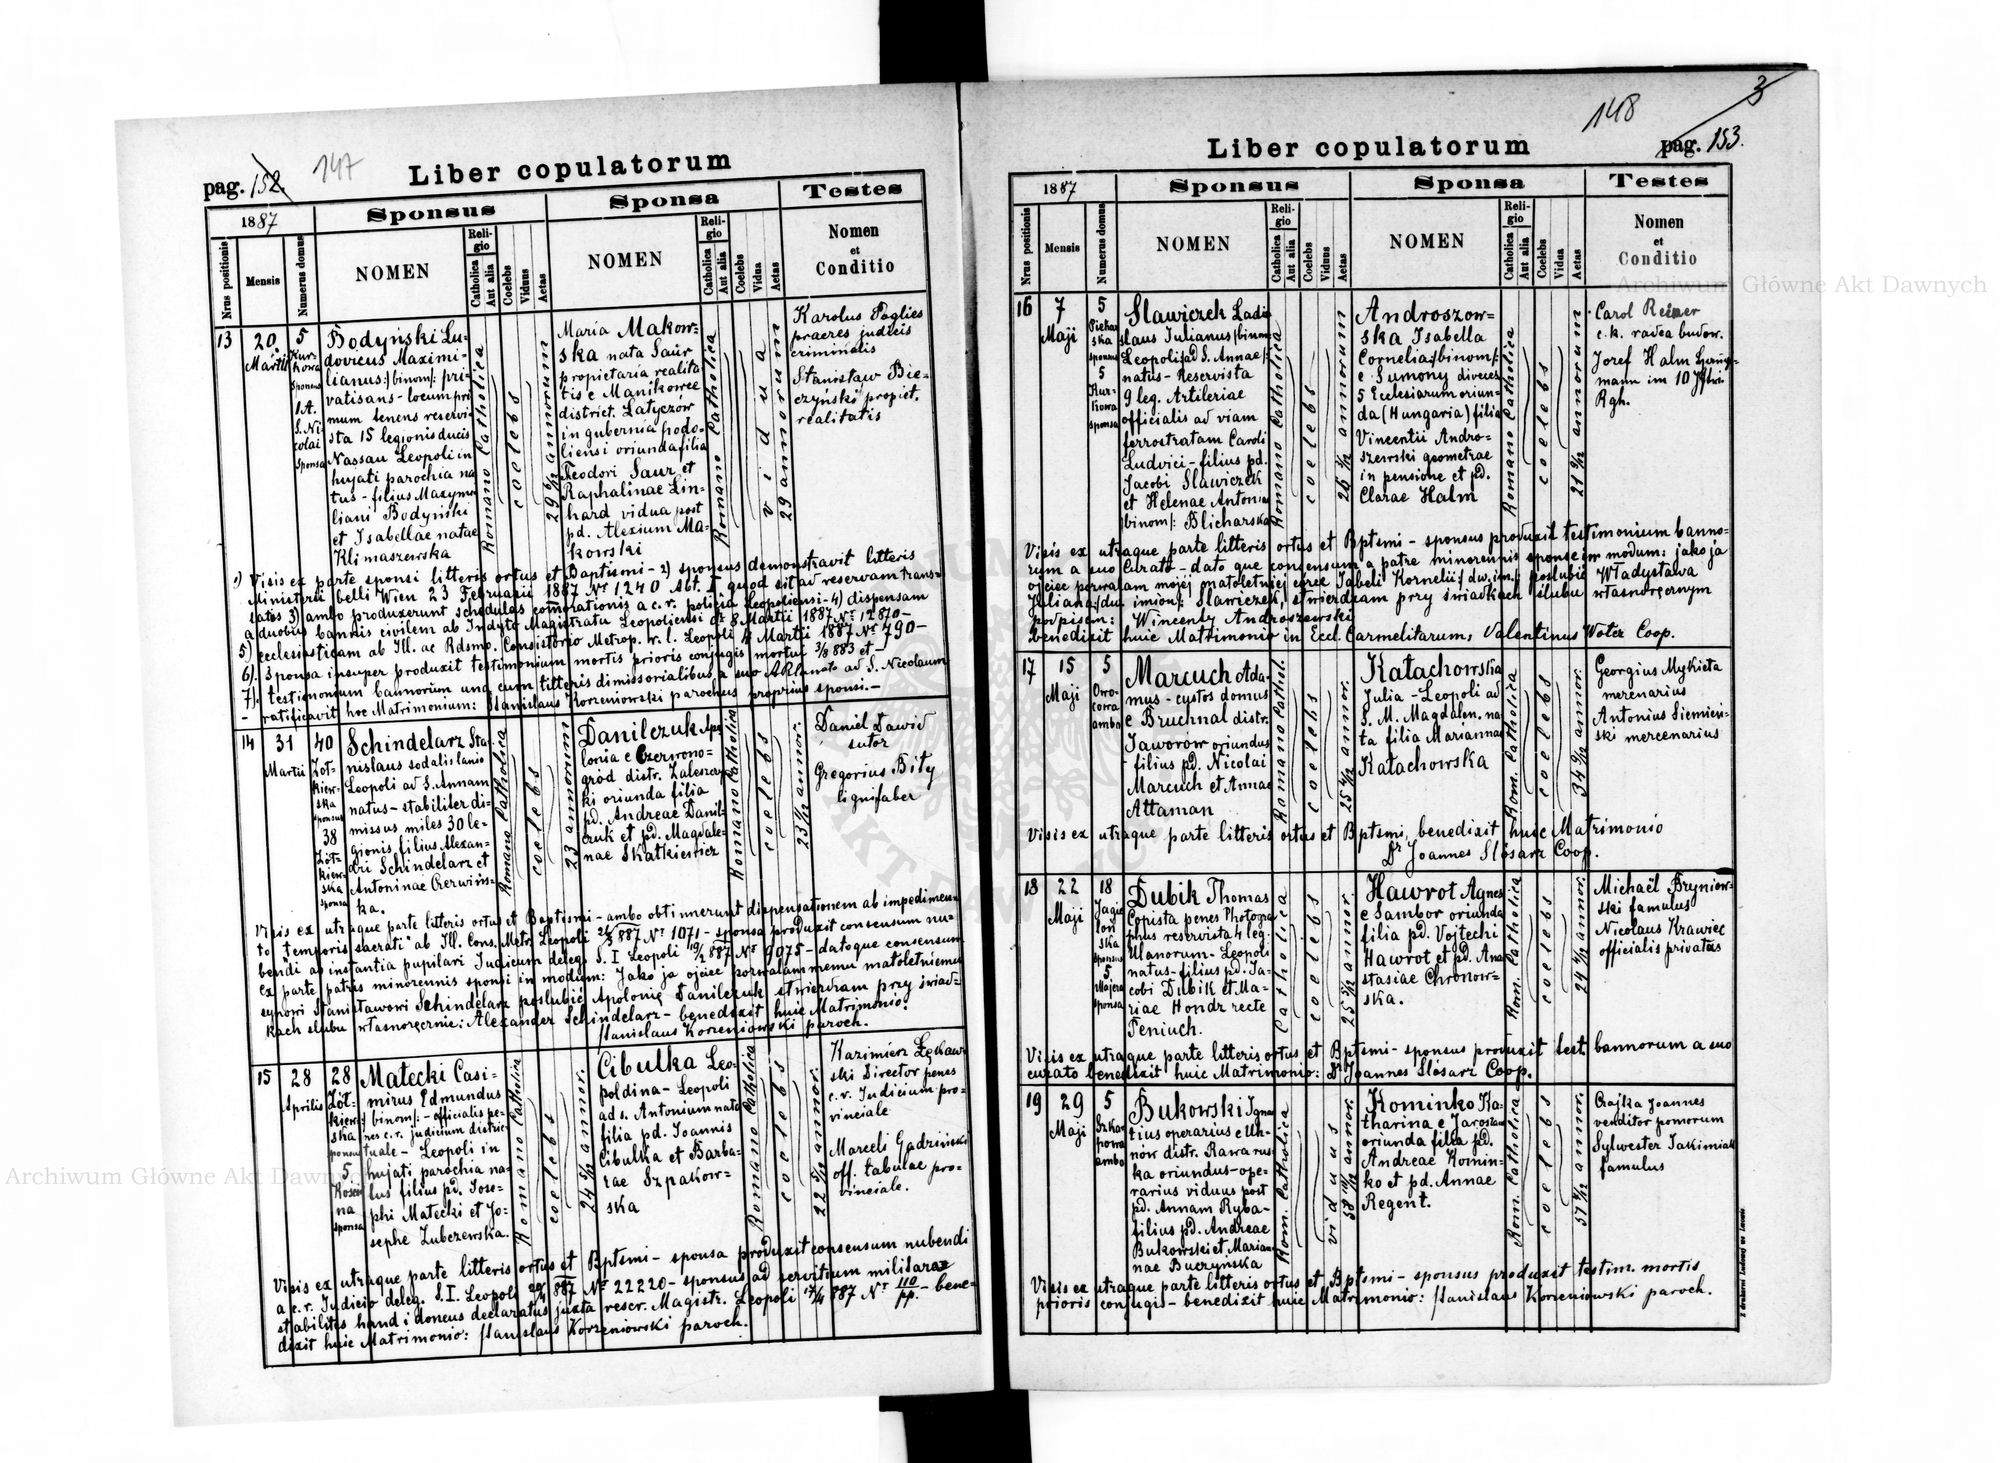 pag. 152. 147 Liber copulatorum
1887
Sponsus
Sponsa
Testes
Nrus positionis
Mensis
Numerus domus
NOMEN
Religio
Catholica
Aut alia
Coelebs
Viduus
Aetas
NOMEN
Religio
Catholica
Aut alia
Coelebs
Vidua
Aetas
Nomen
et
Conditio
13
20
Martii
5
Kurkowa
sponsus
1 A.
S. Nicolai
sponsa
Bodyński Lu-
dovicus Maximi-
lianus /:binom:/ pri-
vatisans - locum pri
mum tenens reservi-
sta 15 legionis ducis
Nassau Leopoli in
hujati parochia na
tus - filius Maxymi
liani Bodyński
et Isabellae natae
Klimaszewska
Romano Catholica
coelebs
29 6/12 annorum
Maria Makow-
ska nata Saur
propietaria realita
tis e Manikowce
district. Latyczów
in gubernia podo-
liensi oriunda filia
Teodori Saur et
Raphalinae Lin-
hard vidua post
pd. Alexium Ma-
kowski
Romano Catholica
vidua
29 annorum
Karolus Paglies
praeses judicis
criminalis
Stanisław Bie-
czyński propiet.
realitatis
1) Visis ex parte sponsi litteris ortus et Baptismi - 2) sponsus demonstravit litteris
Ministerii belli Wien 23 Februarii 1887 Nr 1240 Abt. I quod sit ad reservam trans-
latus 3) ambo produxerunt schedulas comorationis a c. r. policia Leopoliensi - 4) dispensam
a duobus bannis civilem ab Indyto Magistratu Leopoliensi dt 8 Martii 1887 Nr 12870 -
5) ecclesiasticam ab Ill. ac Rdsmo. Consistorio Metrop. w. l. Leopoli 4 Martii 1887 Nr 790 -
6). Sponsa insuper produxit testimonium mortis prioris conjugis mortui 3/8 883 et -
7). testimonium bannorum una cum litteris dimissorialibus a suo ad S. Nicolaum
- ratificavit hoc Matrimonium: Stanislaus Korzeniowski parochus proprius sponsi. -
14
31
Martii
40
Żół-
kiew-
ska
sponsus
38
Żół-
kiew-
ska
sponsa
Schindelarz Sta-
nislaus sodalis lanio
Leopoli ad S. Annam
natus - stabiliter di-
missus miles 30 le-
gionis, filius Alexan-
dri Schindelarz et
Antoninae Czerwińs-
ka.
Romano Catholica
coelebs
23 annorum
Danilczuk Apo
lonia e Czerwono-
gród distr. Zaleszczy
ki oriunda filia
pd. Andreae Danil-
czuk et pd. Magdale-
nae Skatkiewicz
Romano Catholica
coelebs
23 1/12 annor.
Daniel Dawid
sutor
Gregorius Bity
lignifaber
Visis ex utraque parte litteris ortus et Baptismi - ambo obtinuerunt dispensationem ab impedimen-
to "temporis sacrati" ab Ill. Cons. Metr. Leopoli 26/3 887 Nr 1071 - sponsa produxit consensum nu-
bendi ab instantia pupilari Judicium deleg. S. I Leopoli 887 Nr 9075 - datoque consensum
ex parte patris minorennis sponsi in modum: Jako ja ojciec pozwalam memu małoletniemu
synowi Stanisławowi Schindelarz poślubić Apolonię Danilczuk stwierdzam przy świad-
kach ślubu własnoręcznie: Alexander Schindelarz - benedixit huic Matrimonio:
Stanislaus Korzeniowski paroch.
15
28
Aprilis
28
Żół-
kiew-
ska
sponsus
5
sponsa
Małecki Casi-
mirus Edmundus
/:binom:/ - officialis pe-
nes c. r. judicium distric-
tuale - Leopoli in
hujati parochia na-
tus filius pd. Jose-
phi Małecki et Jo-
sephe Zubczewska.
Romano Catholica
coelebs
24 5/12 annor.
Cibulka Leo-
poldina - Leopoli
ad s. Antonium nata
filia pd. Joannis
Cibulka et Barba-
rae Szpakow-
ska
Romano Catholica
coelebs
22 5/12 annor.
Kazimierz Łękaw-
ski Director penes
c. r. Judicium pro-
vinciale
Marceli Gadziński
off. tabulae pro-
vinciale.
Visis ex utraque parte litteris ortus et Bptsmi - sponsa produxit consensum nubendi
a c. r. Judicio deleg. S. I. Leopoli 887 Nr 22220 - sponsus ad servitium militarae
stabilites haud idoneus declaratus juxta rescr. Magistr. Leopoli 17/4 887 Nr 110/pp. - bene-
dixit huic Matrimonio: Stanislaus Korzeniowski paroch.
148
3
Liber copulatorum pag. 153.
1887
Sponsus
Sponsa
Testes
Nrus positionis
Mensis
Numerus domus
NOMEN
Religio
Catholica
Aut alia
Coelebs
Viduus
Aetas
NOMEN
Religio
Catholica
Aut alia
Coelebs
Vidua
Aetas
Nomen
et
Conditio
16
7
Maji
5
Piekar
ska
sponsus
5
Kur-
kowa
sponsa
Sławiczek Ladis
slaus Julianus /:binom
Leopoli ad S. Annae/:
natus - Reservista
9 leg. Artileriae
officialis ad viam
ferrostratam Caroli
Ludvici - filius pd.
Jacobi Sławiczek
et Helenae Antonia
/binom/: Blicharska
Romano Catholica
coelebs
26 3/12 annorum
Androszow-
ska Isabella
Cornelia /:binom/:
e Sumony dioeces
5 Ecclesiarum oriun-
da (Hungaria) filia
Vincentii Andro-
szewski geometrae
in pensione et pd.
Clarae Halm
Romano Catholica
coelebs
21 9/12 annorum
Carol Reiner
c. k. radca budow.
Jozef Halm
mann im 10
Rgh.
Visis ex utraque parte litteris ortus et Bptsmi - sponsus produxit testimonium banno-
rum a suo Curato - dato que consensum a patre minorennis sponse in modum: jako ja
ojciec pozwalam mojej małoletniej córce Izabeli Kornelii /:dw. im:/ poślubić Władysława
Juliana /:dw. imion/: Sławiczek, stwierdzam przy świadkach ślubu własnoręcznym
podpisem: Wincenty Androszewski
benedixit huic Matrimonio in Eccl. Carmelitarum, Valentinus Woter Coop.
17
15
Maji
5
Owo-
cowa
ambo
Marcuch Ada-
mus - custos domus
e Bruchnal distr.
Jaworów oriundus
- filius pd. Nicolai
Marcuch et Annae
Attaman
Romano Cathol.
coelebs
25 4/12 annor.
Katachowska
Julia - Leopoli ad
S. M. Magdalen. na-
ta filia Mariannae
Katachowska
Rom. Catholica
coelebs
34 9/12 annor.
Georgius Mykieta
mercenarius
Antonius Siemien-
ski mercenarius
Visis ex utraque parte litteris ortus et Bptsmi, benedixit huic Matrimonio
Dr Joannes Slósarz Coop.
18
22
Maji
18
Jagiel
lon
ska
sponsus
5
Majera
sponsa
Dubik Thomas
Copista penes Photogra
phus reservista 4 leg.
Ulanorum - Leopoli
natus - filius pd. Ja-
cobi Dubik et Ma-
riae Hondz recte
Feniuch.
Catholica
coelebs
25 5/12 annor.
Hawrot Agnes
e Sambor oriunda
filia pd. Vojtechi
Hawrot et pd. Ana
stasiae Chronow-
ska.
Rom. Catholica
coelebs
24 4/12 annor.
Michaël Bryniow-
ski famulus
Nicolaus Krawiec
officialis privatus
Visis ex utraque parte litteris ortus et Bptsmi - sponsus produxit test. bannorum a suo
curato benedixit huic Matrimonio: Dr Joannes Slósarz Coop.
19
29
Maji
5
Szkar
powa
ambo
Bukowski Igna
tius operarius e Uh-
nów distr. Rawa rus-
ka oriundus - ope-
rarius viduus post
pd. Annam Ryba-
filius pd. Andreae
Bukowski et Marian
nae Buczyńska
Rom. Catholica
viduus
58 10/12 annor.
Kominko Ka-
tharina e Jarosław
oriunda filia pd.
Andreae Komin-
ko et pd. Annae
Regent.
Rom. Catholica
coelebs
37 6/12 annor.
Czajka Joannes
venditor pomorum
Sylwester Jakimiak
famulus
Visis ex utraque parte litteris ortus et Bptsmi - sponsus produxit testim. mortis
prioris conjugis - benedixit huic Matrimonio: Stanislaus Korzeniowski paroch.
Z drukarni Ludowej we Lwowie
Archiwum Główne Akt Dawnych
Archiwum Główne Akt Dawnych